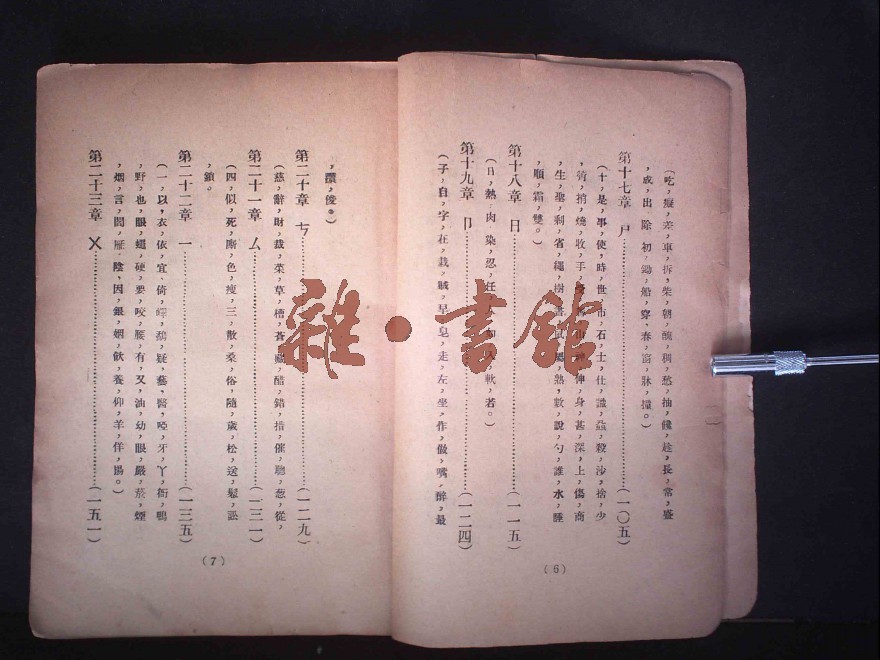 （吃，癡，差，車，拆，柴，朝，醜，稠，愁，抽，饞，趁，長，常，盛
，成，出，除，初，鋤，船，穿，春，窗，牀，撞。）
第十七章 ㄕ……（一〇五）
（十，是，事，使，時，世，市，石，士，仕，識，蝨，殺，沙，捨，少
，稍，燒，收，手，伸，身，甚，深，上，傷，商
，生，聖，剩，省，繩，樹，熟，數，說，勺，誰，水，睡
，順，霜，雙。）
第十八章 ㄖ……（一一五）
（日，熱，肉，染，忍，任，軟，若。）
第十九章 ㄗ……（一二四）
（子，自，字，在，栽，賊，早，皂，走，左，坐，作，做，嘴，醉，最
（6）
，鑽，俊。）
第二十章 ㄘ……（一二九）
（慈，辭，財，裁，菜，草，槽，蒼，藏，醋，錯，措，催，聰，葱，從，
第二十一章 ㄙ……（一三一）
（四，似，死，廝，色，瘦，三，散，桑，俗，隨，歲，松，送，鬆，訟
，鎖。
第二十二章 一……（一三五）
（一，以，衣，依，宜，倚，疑，藝，醫，啞，牙，丫，衙，鴨
，野，也，眼，蠅，硬，要，咬，腰，有，又，油，幼，眼，嚴，煙
，烟，言，閻，雁，陰，因，銀，姻，飲，養，仰，羊，佯，陽。）
第二十三章 ㄨ……（一五一）
（7）
雜·書館